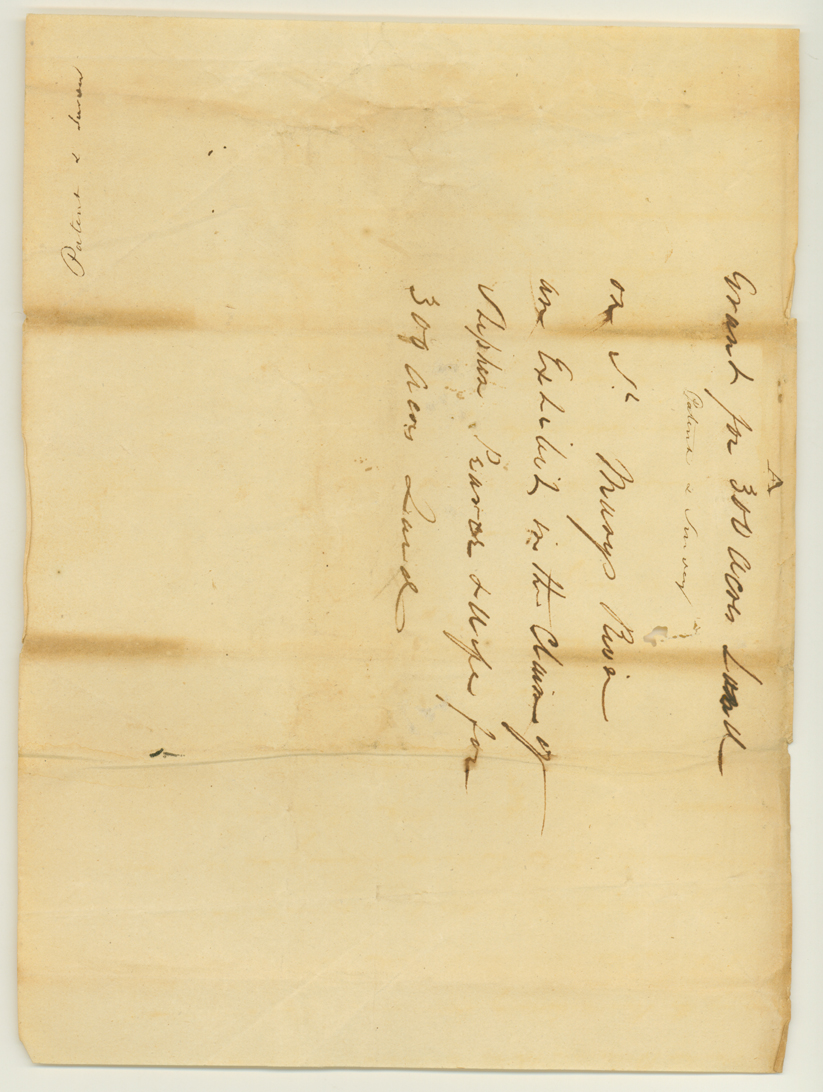 A
Grant for 300 acres Land
Patent & Survey
on St Marys River
an Exhibit in the Claim of
Stephen & Wife for
300 acres Land
Patent &